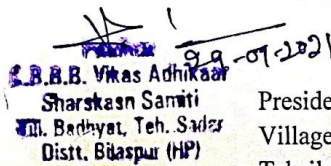 29-09-2021
President
K.B.B.B. Vikas Adhikaar
Sharskasn Samiti
Vill. Badhyat, Teh. Sadar
Distt. Bilaspur (HP)
Preside
Village